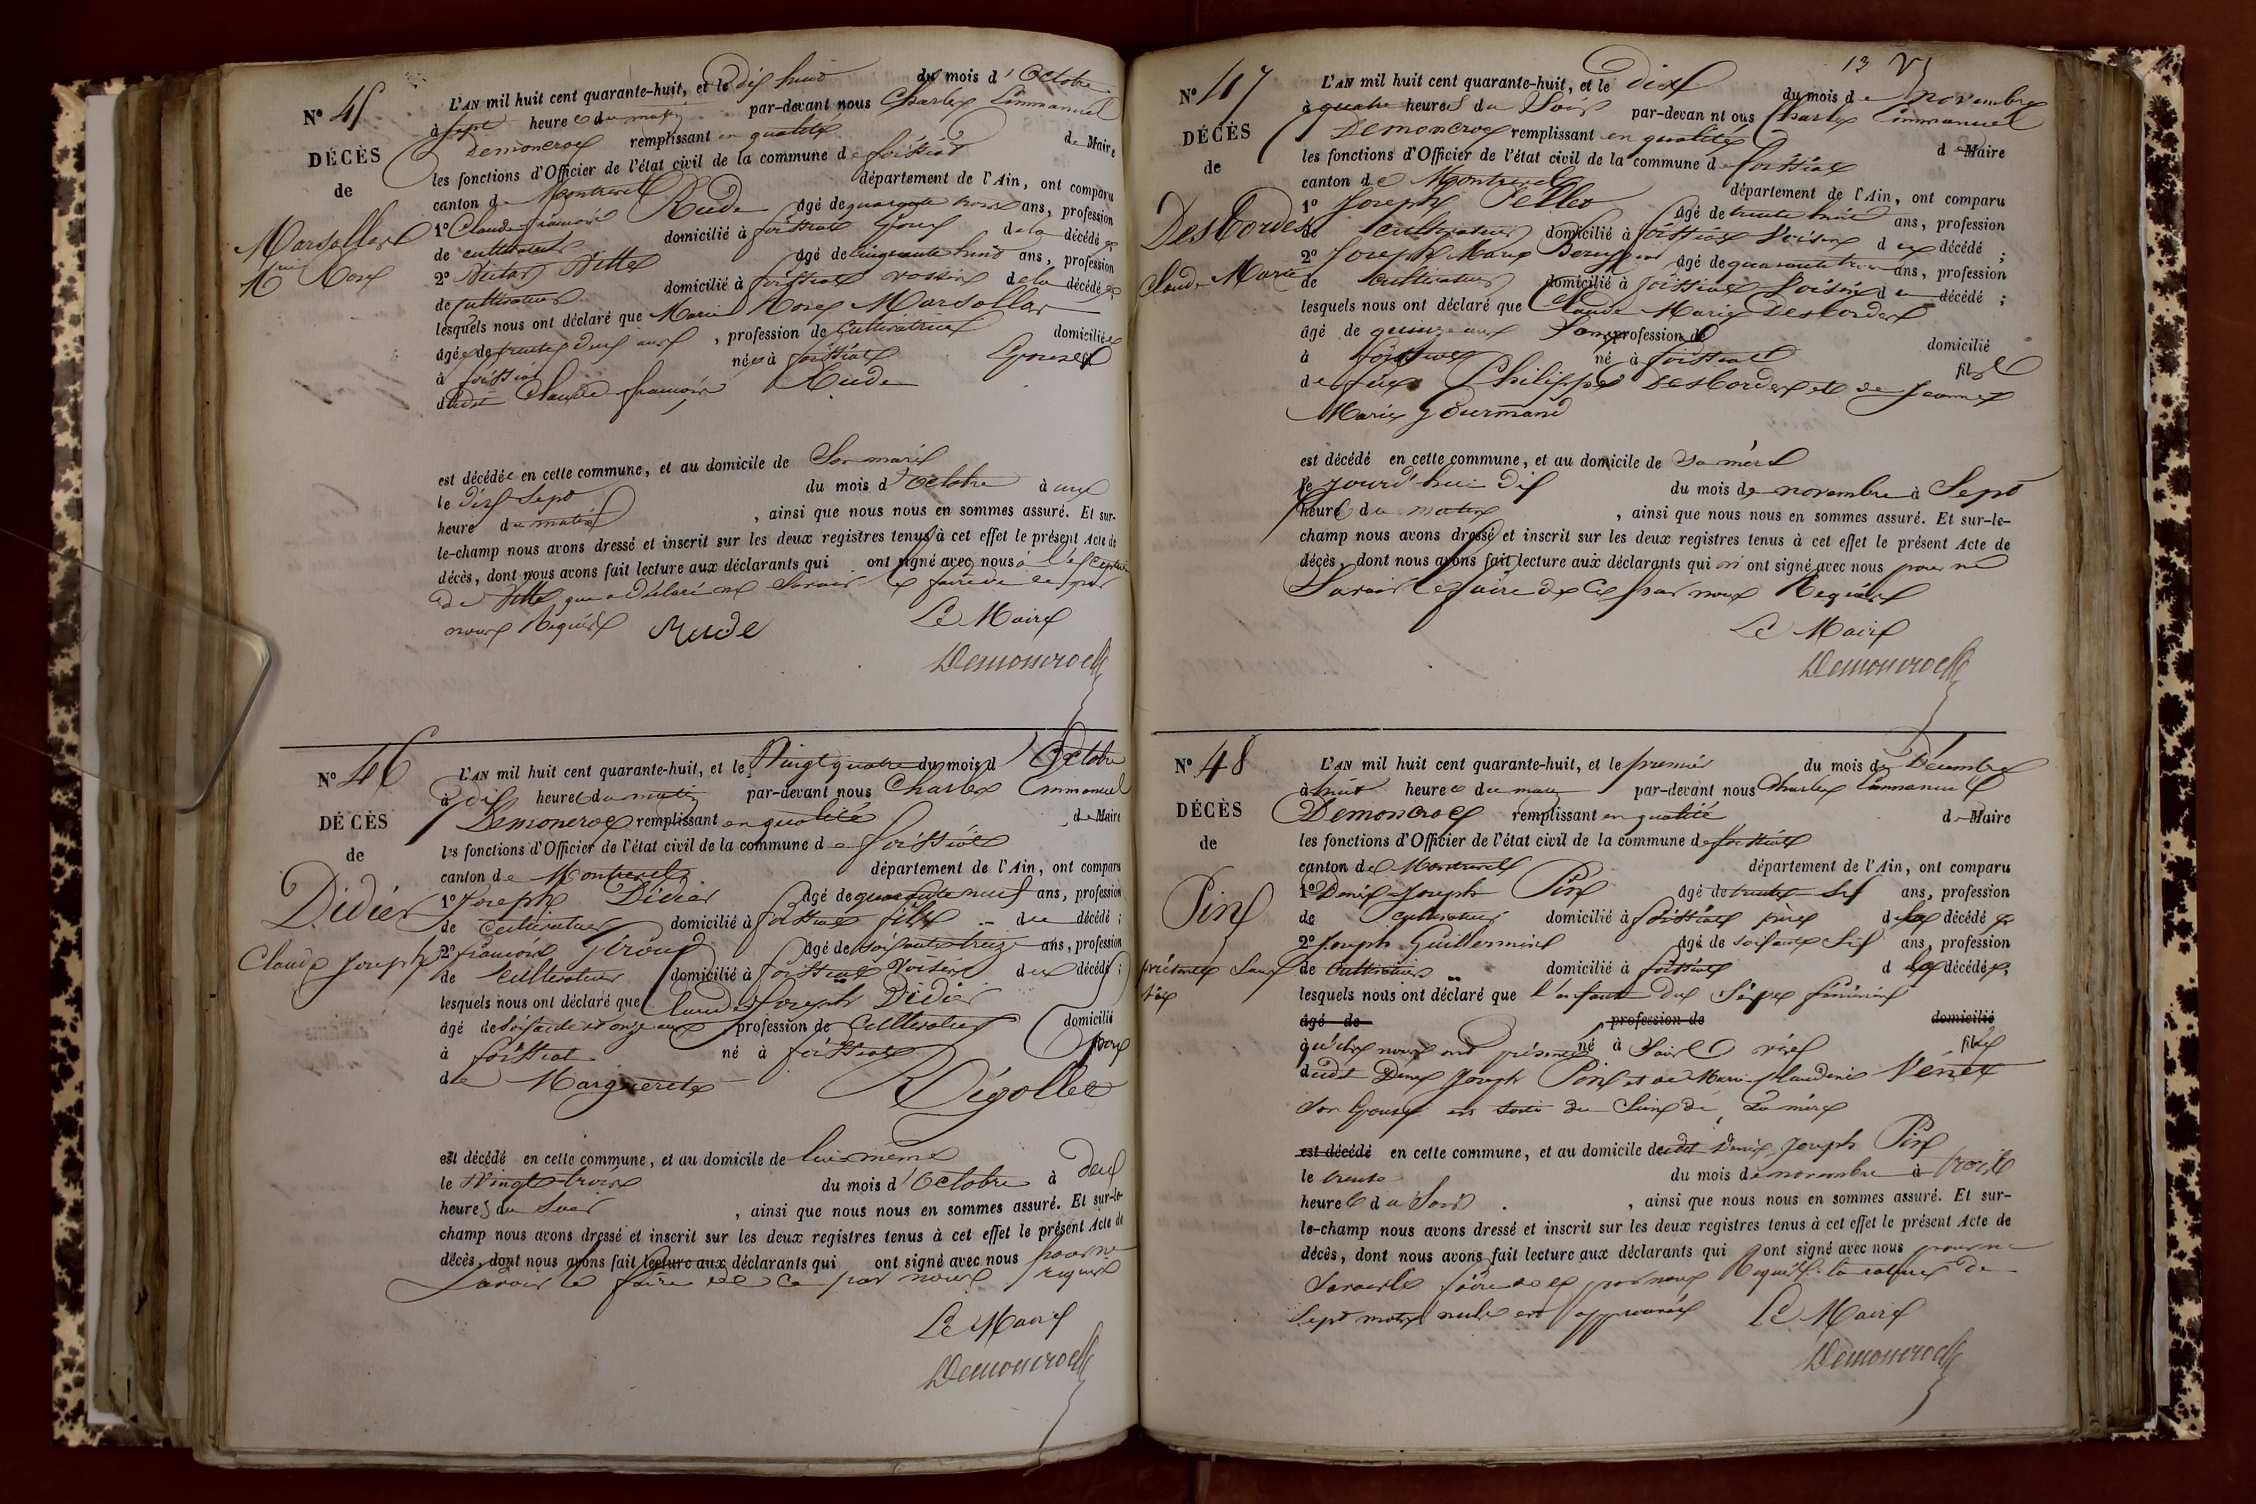 N° 45
DÉCÈS
de
Marsollat
Mie Rose
L'AN mil huit cent quarante-huit, et le dix huit du mois d'Octobre
à sept heures du matin par-devant nous Charles Emmanuel
Demoncroc remplissant en qualité de Maire
les fonctions d'Officier de l'état civil de la commune de foissiat
canton de Montrevel département de l'Ain, ont comparu
1° Claude françois Rude âgé de quarante trois ans, profession
de cultivateur domicilié à foissiat Epoux de la décédée
2° Vitte âgé de cinquante huit ans, profession
de cultivateur domicilié à foissiat voisin de la décédée;
lesquels nous ont déclaré que Marie Rose Marsollat
âgée de trente deux ans, profession de Cultivatrice domiciliée
à foissiat née à foissiat Epouse
dudit Claude françois Rude
est décédée en cette commune, et au domicile de Son mari
le dix Sept du mois d'octobre à une
heure du matin, ainsi que nous nous en sommes assuré. Et sur-
le-champ nous avons dressé et inscrit sur les deux registres tenus à cet effet le présent Acte de
décès, dont nous avons fait lecture aux déclarants qui ont signé avec nous à l'exception
de Vitte que a déclaré ne Savoir le faire de ce par
nous Requis Rude Le Maire
Demoncroc
N° 46
DÉCÈS
de
Didier
Claude Joseph
L'AN mil huit cent quarante-huit, et le Vingt quatre du mois d'Octobre
à dix heures du matin par-devant nous Charles Emmanuel
Demoncroc remplissant en qualité de Maire
les fonctions d'Officier de l'état civil de la commune de foissiat
canton de Montrevel département de l'Ain, ont comparu
1° Joseph Didier âgé de quarante neuf ans, profession
de cultivateur domicilié à foissiat fils du décédé;
2° françois âgé de soixante treize ans, profession
de cultivateur domicilié à foissiat Voisin du décédé;
lesquels nous ont déclaré que Claude Joseph Didier
âgé de Soixante et onze ans profession de Cultivateur domicilié
à foissiat né à foissiat Epoux
de Marguerite Rigollet
est décédé en cette commune, et au domicile de lui même
le Vingt trois du mois d'Octobre à deux
heures du Soir, ainsi que nous nous en sommes assuré. Et sur-le-
champ nous avons dressé et inscrit sur les deux registres tenus à cet effet le présent Acte de
décès, dont nous avons fait lecture aux déclarants qui ont signé avec nous pour ne
Savoir le faire de ce par nous requis
Le Maire
Demoncroc
13
N° 47
DÉCÈS
de
Desbordes
Claude Marie
L'AN mil huit cent quarante-huit, et le dix du mois de novembre
à quatre heures du Soir par-devan nt ous Charles Emmanuel
Demoncroc remplissant en qualité de Maire
les fonctions d'Officier de l'état civil de la commune de foissiat
canton de Montrevel département de l'Ain, ont comparu
1° Joseph Pellet âgé de trente huit ans, profession
de cultivateur domicilié à foissiat Voisin du décédé;
2° Joseph Marie âgé de quarante trois ans, profession
de cultivateur domicilié à foissiat Voisin du décédé;
lesquels nous ont déclaré que Claude Marie Desbordes
âgé de quinze ans Sans profession de domicilié
à foissiat né à foissiat fils
de feu Philippe Desbordes et de Jeanne
Marie Gourmand
est décédé en cette commune, et au domicile de Sa mère
le jourd'hui dix du mois de novembre à Sept
heures du matin, ainsi que nous nous en sommes assuré. Et sur-le-
champ nous avons dressé et inscrit sur les deux registres tenus à cet effet le présent Acte de
décès, dont nous avons fait lecture aux déclarants qui n'ont signé avec nous pour ne
Savoir le faire de ce par nous Requis
Le Maire
Demoncroc
N° 48
DÉCÈS
de
Pin
présenté Sans
Vie
L'AN mil huit cent quarante-huit, et le premier du mois de Décembre
à huit heures du matin par-devant nous Charles Emmanuel
Demoncroc remplissant en qualité de Maire
les fonctions d'Officier de l'état civil de la commune de foissiat
canton de Montrevel département de l'Ain, ont comparu
1° Denis Joseph Pin âgé de trente Six ans, profession
de cultivateur domicilié à foissiat père de la décédée
2° Joseph Guillermin âgé de soixante Six ans, profession
de Cultivateur domicilié à foissiat de la décédée;
lesquels nous ont déclaré que l'enfant du Sexe féminin
âgé de profession de domicilié
qu'ils nous ont présenté né à Sans vie fille
dudit Denis Joseph Pin et de Marie Claudine Vénet
Son Epouse est sorti du Sein de Sa mère
est décédé en cette commune, et au domicile dudit Denis Joseph Pin
le trente du mois de novembre à trois
heures du Soir, ainsi que nous nous en sommes assuré. Et sur-
le-champ nous avons dressé et inscrit sur les deux registres tenus à cet effet le présent Acte de
décès, dont nous avons fait lecture aux déclarants qui ont signé avec nous pour ne
Savoir le faire de ce par nous Requis la rature de
Sept mots nuls est approuvée Le Maire
Demoncroc